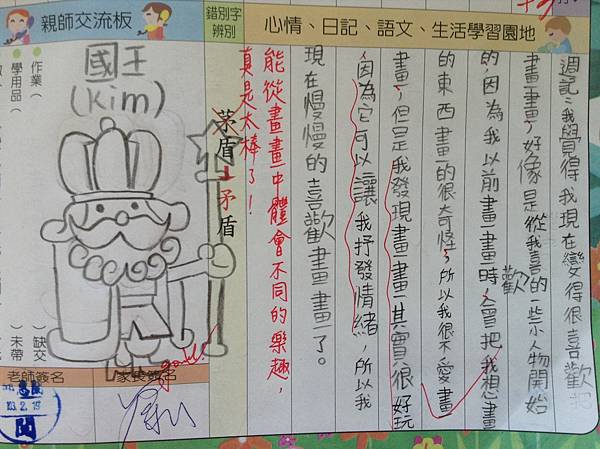 心情、日記、語文、生活學習園地
週記:我覺得我現在變得很喜歡把
畫畫,好像是從我喜歡的一些小人物開始
的,因為我以前畫畫時,會把我想畫
的東西畫的很奇怪,所以我很不愛畫
畫,但是我發現畫畫其實很好玩
,因為它可以讓我抒發情緒,所以我
現在慢慢的喜歡畫畫了。
能從畫畫中體會不同的樂趣,
真是太棒了!
錯別字
辨別
茅盾→矛盾
親師交流板
國王
(Kim)
作業( )缺交
學用品( )未帶
老師簽名
家長簽名
good!
閱